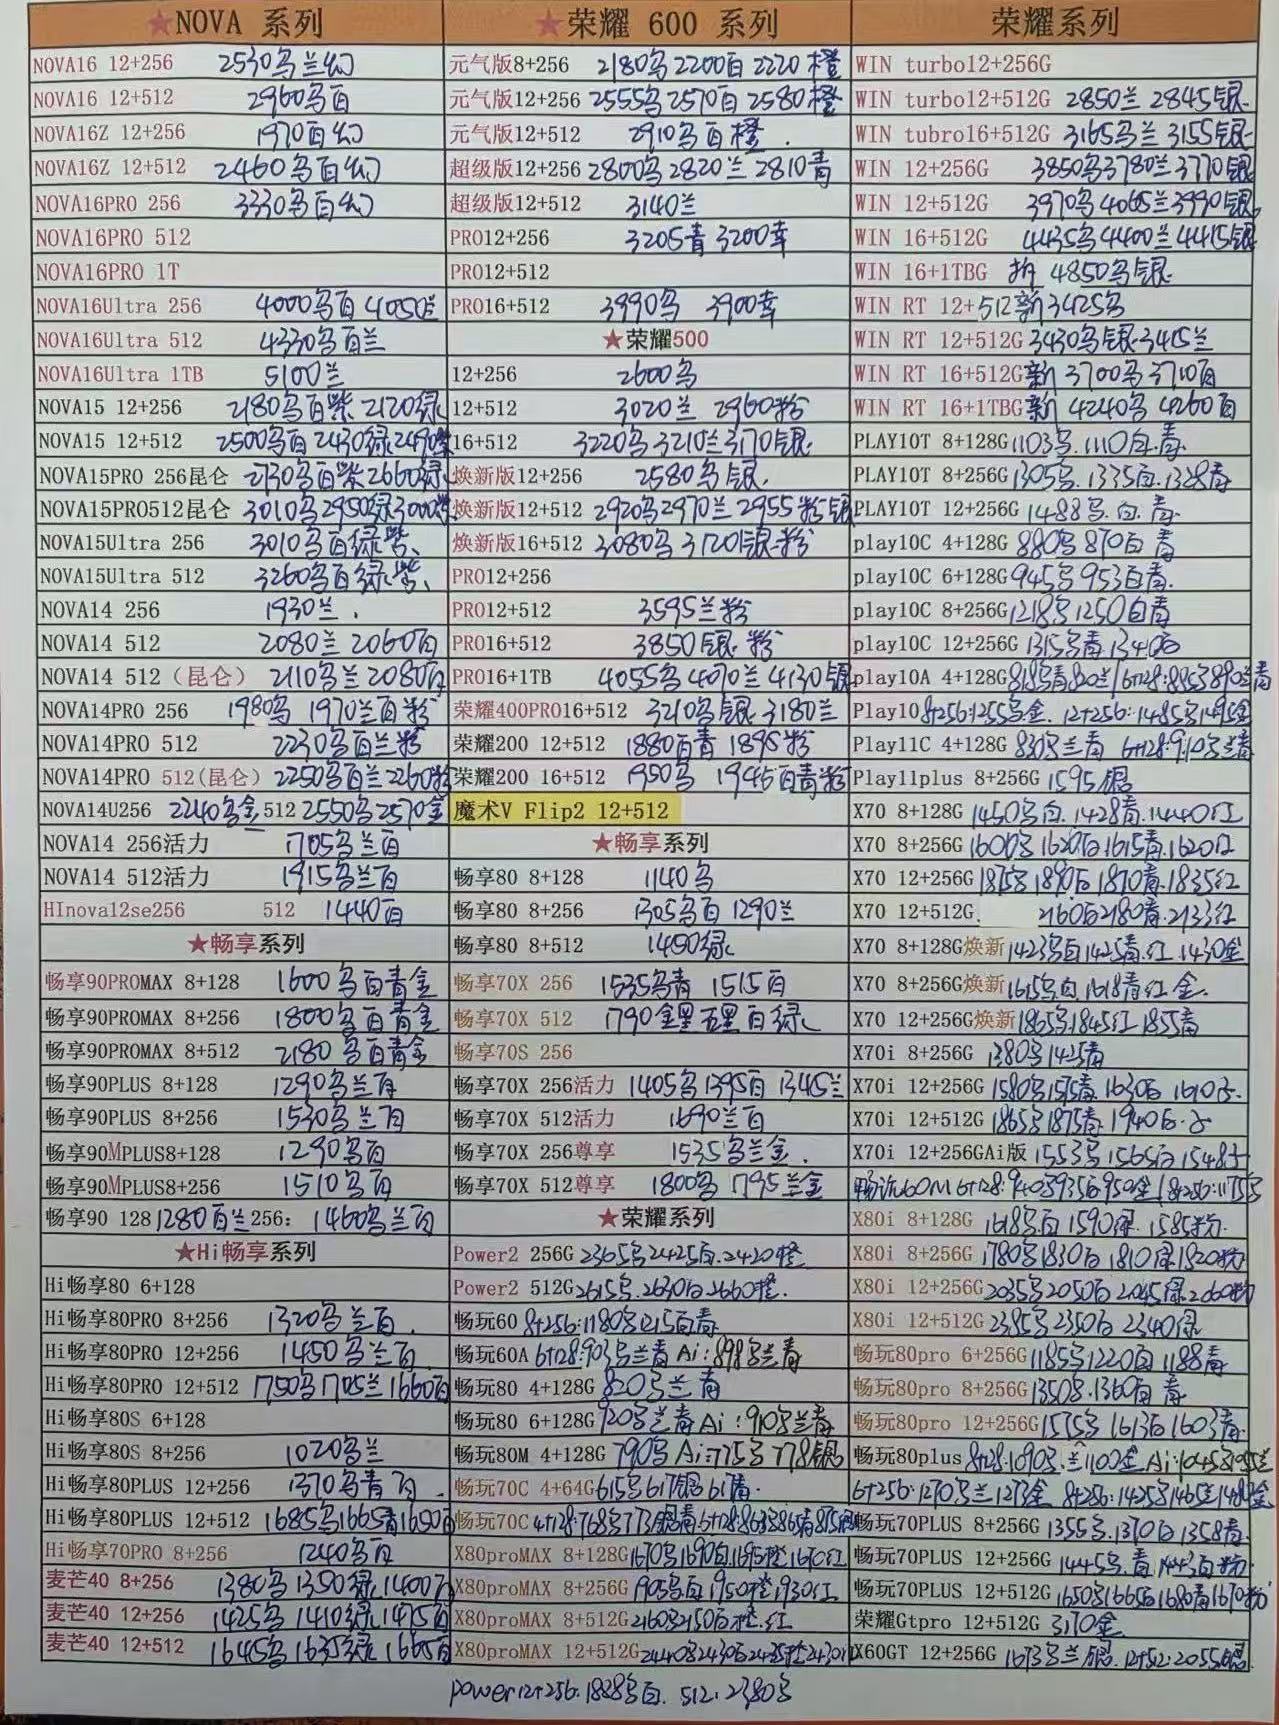 ★NOVA 系列
NOVA16 12+256 2530乌兰幻
NOVA16 12+512 2960乌百
NOVA16Z 12+256 1970百幻
NOVA16Z 12+512 2460乌百幻
NOVA16PRO 256 3330乌百幻
NOVA16PRO 512
NOVA16PRO 1T
NOVA16Ultra 256 4000乌百 4050兰
NOVA16Ultra 512 4330乌百兰
NOVA16Ultra 1TB 5100兰
NOVA15 12+256 2180乌百紫 2120绿
NOVA15 12+512 2500乌百 2430绿 2490紫
NOVA15PRO 256昆仑 2730乌百紫 2660绿
NOVA15PRO512昆仑 3010乌 2950绿 3000紫
NOVA15Ultra 256 3010乌百绿紫
NOVA15Ultra 512 3260乌百绿紫
NOVA14 256 1930兰
NOVA14 512 2080兰 2060百
NOVA14 512（昆仑） 2110乌兰 2080百
NOVA14PRO 256 1980乌 1970兰百粉
NOVA14PRO 512 2230乌百兰粉
NOVA14PRO 512(昆仑) 2250乌百兰 2260粉
NOVA14U256 2240乌金 512 2550乌 2570金
NOVA14 256活力 1705乌兰百
NOVA14 512活力 1915乌兰百
HInova12se256 512 1440百
★畅享系列
畅享90PROMAX 8+128 1600乌百青金
畅享90PROMAX 8+256 1800乌百青金
畅享90PROMAX 8+512 2180乌百青金
畅享90PLUS 8+128 1290乌兰百
畅享90PLUS 8+256 1530乌兰百
畅享90MPLUS8+128 1290乌百
畅享90MPLUS8+256 1510乌百
畅享90 128 1280百兰 256： 1460乌兰百
★Hi畅享系列
Hi畅享80 6+128
Hi畅享80PRO 8+256 1320乌兰百
Hi畅享80PRO 12+256 1450乌兰百
Hi畅享80PRO 12+512 1750乌 1705兰 1660百
Hi畅享80S 6+128
Hi畅享80S 8+256 1020乌兰
Hi畅享80PLUS 12+256 1370乌青百
Hi畅享80PLUS 12+512 1685乌 1665青 1650百
Hi畅享70PRO 8+256 1240乌百
麦芒40 8+256 1380乌 1350绿 1400百
麦芒40 12+256 1425乌 1410绿 1475百
麦芒40 12+512 1645乌 1635绿 1665百
★荣耀 600 系列
元气版8+256 2180乌 2200百 2220橙
元气版12+256 2555乌 2570百 2580橙
元气版12+512 2910乌百橙
超级版12+256 2800乌 2820兰 2810青
超级版12+512 3140兰
PRO12+256 3205青 3200幸
PRO12+512
PRO16+512 3990乌 3900幸
★荣耀500
12+256 2600乌
12+512 3020兰 2960粉
16+512 3220乌 3210兰 3170银
焕新版12+256 2580乌银
焕新版12+512 2920乌 2970兰 2955粉银
焕新版16+512 3080乌 3120银粉
PRO12+256
PRO12+512 3595兰粉
PRO16+512 3850银粉
PRO16+1TB 4055乌 4070兰 4130银
荣耀400PRO16+512 3210乌银 3180兰
荣耀200 12+512 1880百青 1895粉
荣耀200 16+512 1950乌 1946百青粉
魔术V Flip2 12+512
★畅享系列
畅享80 8+128 1140乌
畅享80 8+256 1305乌百 1290兰
畅享80 8+512 1450绿
畅享70X 256 1535乌青 1515百
畅享70X 512 1790金黑 百绿
畅享70S 256
畅享70X 256活力 1405乌 1395百 1345兰
畅享70X 512活力 1690兰百
畅享70X 256尊享 1535乌兰金
畅享70X 512尊享 1800乌 1795兰金
★荣耀系列
Power2 256G 2365乌 2425百 2420橙
Power2 512G 2615乌 2630百 2660橙
畅玩60 8+256:1180乌 1215百青
畅玩60A 6+128:903乌兰青 Ai:898乌兰青
畅玩80 4+128G 820乌兰青
畅玩80 6+128G 920乌兰青 Ai:910乌兰青
畅玩80M 4+128G 790乌 Ai:775乌 778银
畅玩70C 4+64G 615乌 617银 617青
畅玩70C 4+128:768乌 773银青 6+128:863乌 865青 875银
X80proMAX 8+128G 1670乌 1690百 1695橙 1670红
X80proMAX 8+256G 1905乌百 1950橙 1930红
X80proMAX 8+512G 2160乌 2150百橙红
X80proMAX 12+512G 2440乌 2430百 2435橙 2430红
荣耀系列
WIN turbo12+256G
WIN turbo12+512G 2850兰 2845银
WIN tubro16+512G 3165乌兰 3155银
WIN 12+256G 3850乌 3780兰 3770银
WIN 12+512G 3970乌 4065兰 3990银
WIN 16+512G 4435乌 4400兰 4415银
WIN 16+1TBG 拆 4850乌银
WIN RT 12+512新 3425乌
WIN RT 12+512G 3430乌银 3415兰
WIN RT 16+512G新 3700乌 3710百
WIN RT 16+1TBG新 4240乌 4260百
PLAY10T 8+128G 1103乌 1110白青
PLAY10T 8+256G 1305乌 1335百 1328青
PLAY10T 12+256G 1488乌白青
play10C 4+128G 880乌 870百青
play10C 6+128G 945乌 953百青
play10C 8+256G 1218乌 1250白青
play10C 12+256G 1315乌青 1340百
play10A 4+128G 818乌青 820兰 6+128:885乌 890兰青
Play10 8+256:1255乌金 12+256:1485乌 1495金
Play11C 4+128G 830乌兰青 6+128:910乌兰青
Play11plus 8+256G 1595银
X70 8+128G 1450乌白 1428青 1440红
X70 8+256G 1600乌 1620百 1615青 1620红
X70 12+256G 1875乌 1890百 1870青 1835红
X70 12+512G 2160百 2180青 2133红
X70 8+128G焕新 1423乌百 1425青红 1430金
X70 8+256G焕新 1615乌白 1618青红金
X70 12+256G焕新 1865乌 1845红 1855青
X70i 8+256G 1380乌 1425青
X70i 12+256G 1580乌 1575青 1630百 1610
X70i 12+512G 1865乌 1875青 1940百
X70i 12+256GAi版 1553乌 1565百 1548
畅玩60M 6+128:940乌 935百 950金 8+256:1175乌
X80i 8+128G 1618乌百 1590绿 1585粉
X80i 8+256G 1780乌 1830百 1810绿 1820粉
X80i 12+256G 2035乌 2050百 2045绿 2060粉
X80i 12+512G 2385乌 2350百 2340绿
畅玩80pro 6+256G 1185乌 1220百 1188青
畅玩80pro 8+256G 1350乌 1360百青
畅玩80pro 12+256G 1575乌 1613百 1603青
畅玩80plus 8+128:1090乌兰 1100金 Ai:1045乌
6+256:1270乌兰 1273金 8+256:1425乌 1465兰 1485金
畅玩70PLUS 8+256G 1355乌 1370白 1358青
畅玩70PLUS 12+256G 1445乌青 1443百粉
畅玩70PLUS 12+512G 1650乌 1665百 1680青 1670粉
荣耀Gtpro 12+512G 3170金
X60GT 12+256G 1673乌兰银 12+512:2055银
power12+256:1828乌百 512:2380乌